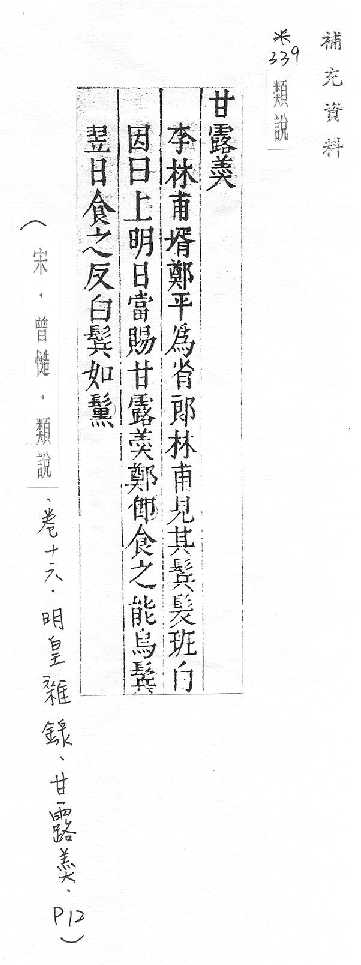 補充資料
※339
類說
甘露羹
李林甫壻鄭平為省郎林甫見其鬂髮班白
因曰上明日當賜甘露羹鄭郎食之能烏鬂
翌日食之反白鬂如黳
（宋．曾慥．類說．卷十六．明皇雜錄、甘露羹．P12）